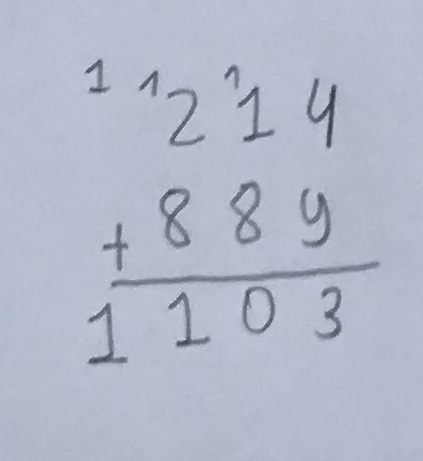 1 1 1
2 1 4
+ 8 8 9
1 1 0 3